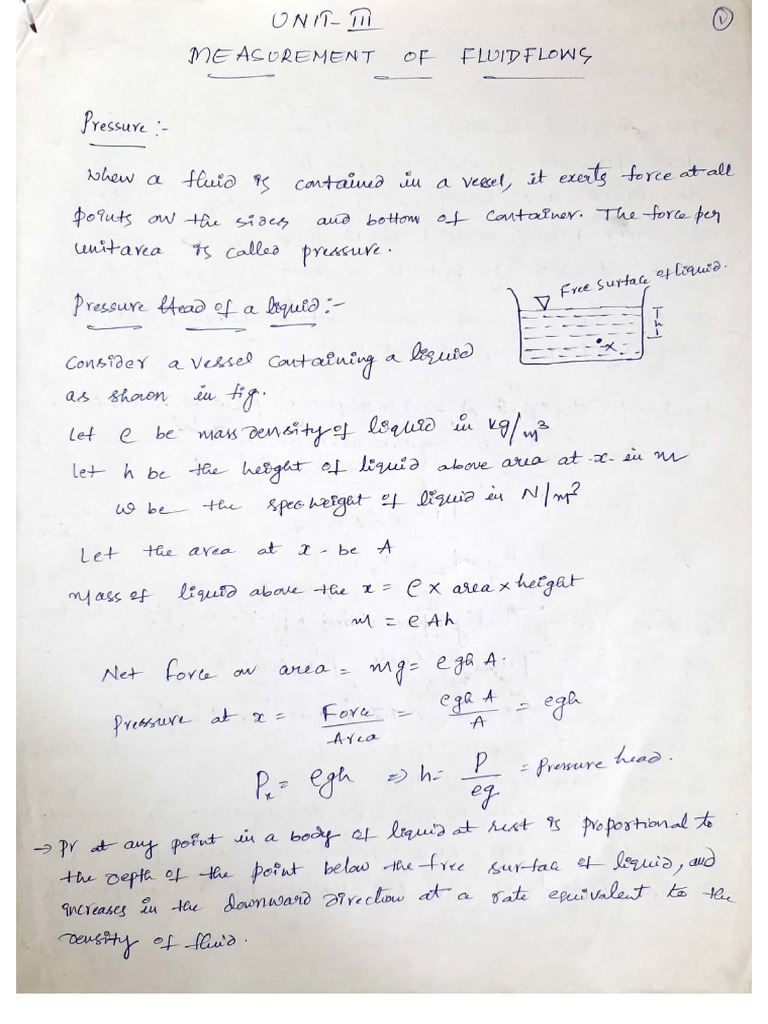 UNIT-III
1
MEASUREMENT OF FLUIDFLOWS
Pressure :-
When a fluid is contained in a vessel, it exerts force at all
points on the sides and bottom of container. The force per
unit area is called pressure.
Pressure Head of a liquid :-
Free surface of liquid.
h
x
Consider a vessel containing a liquid
as shown in fig.
Let ρ be mass density of liquid in kg/m³
let h be the height of liquid above area at -x- in m
w be the spec weight of liquid in N/m³
Let the area at x - be A
Mass of liquid above the x = ρ × area × height
m = ρAh
Net force on area = mg = ρgh A.
Pressure at x = Force/Area = ρgh A/A = ρgh
Pₓ = ρgh ⇒ h = P/ρg = pressure head.
→ Pr at any point in a body of liquid at rest is proportional to
the depth of the point below the free surface of liquid, and
increases in the downward direction at a rate equivalent to the
density of fluid.